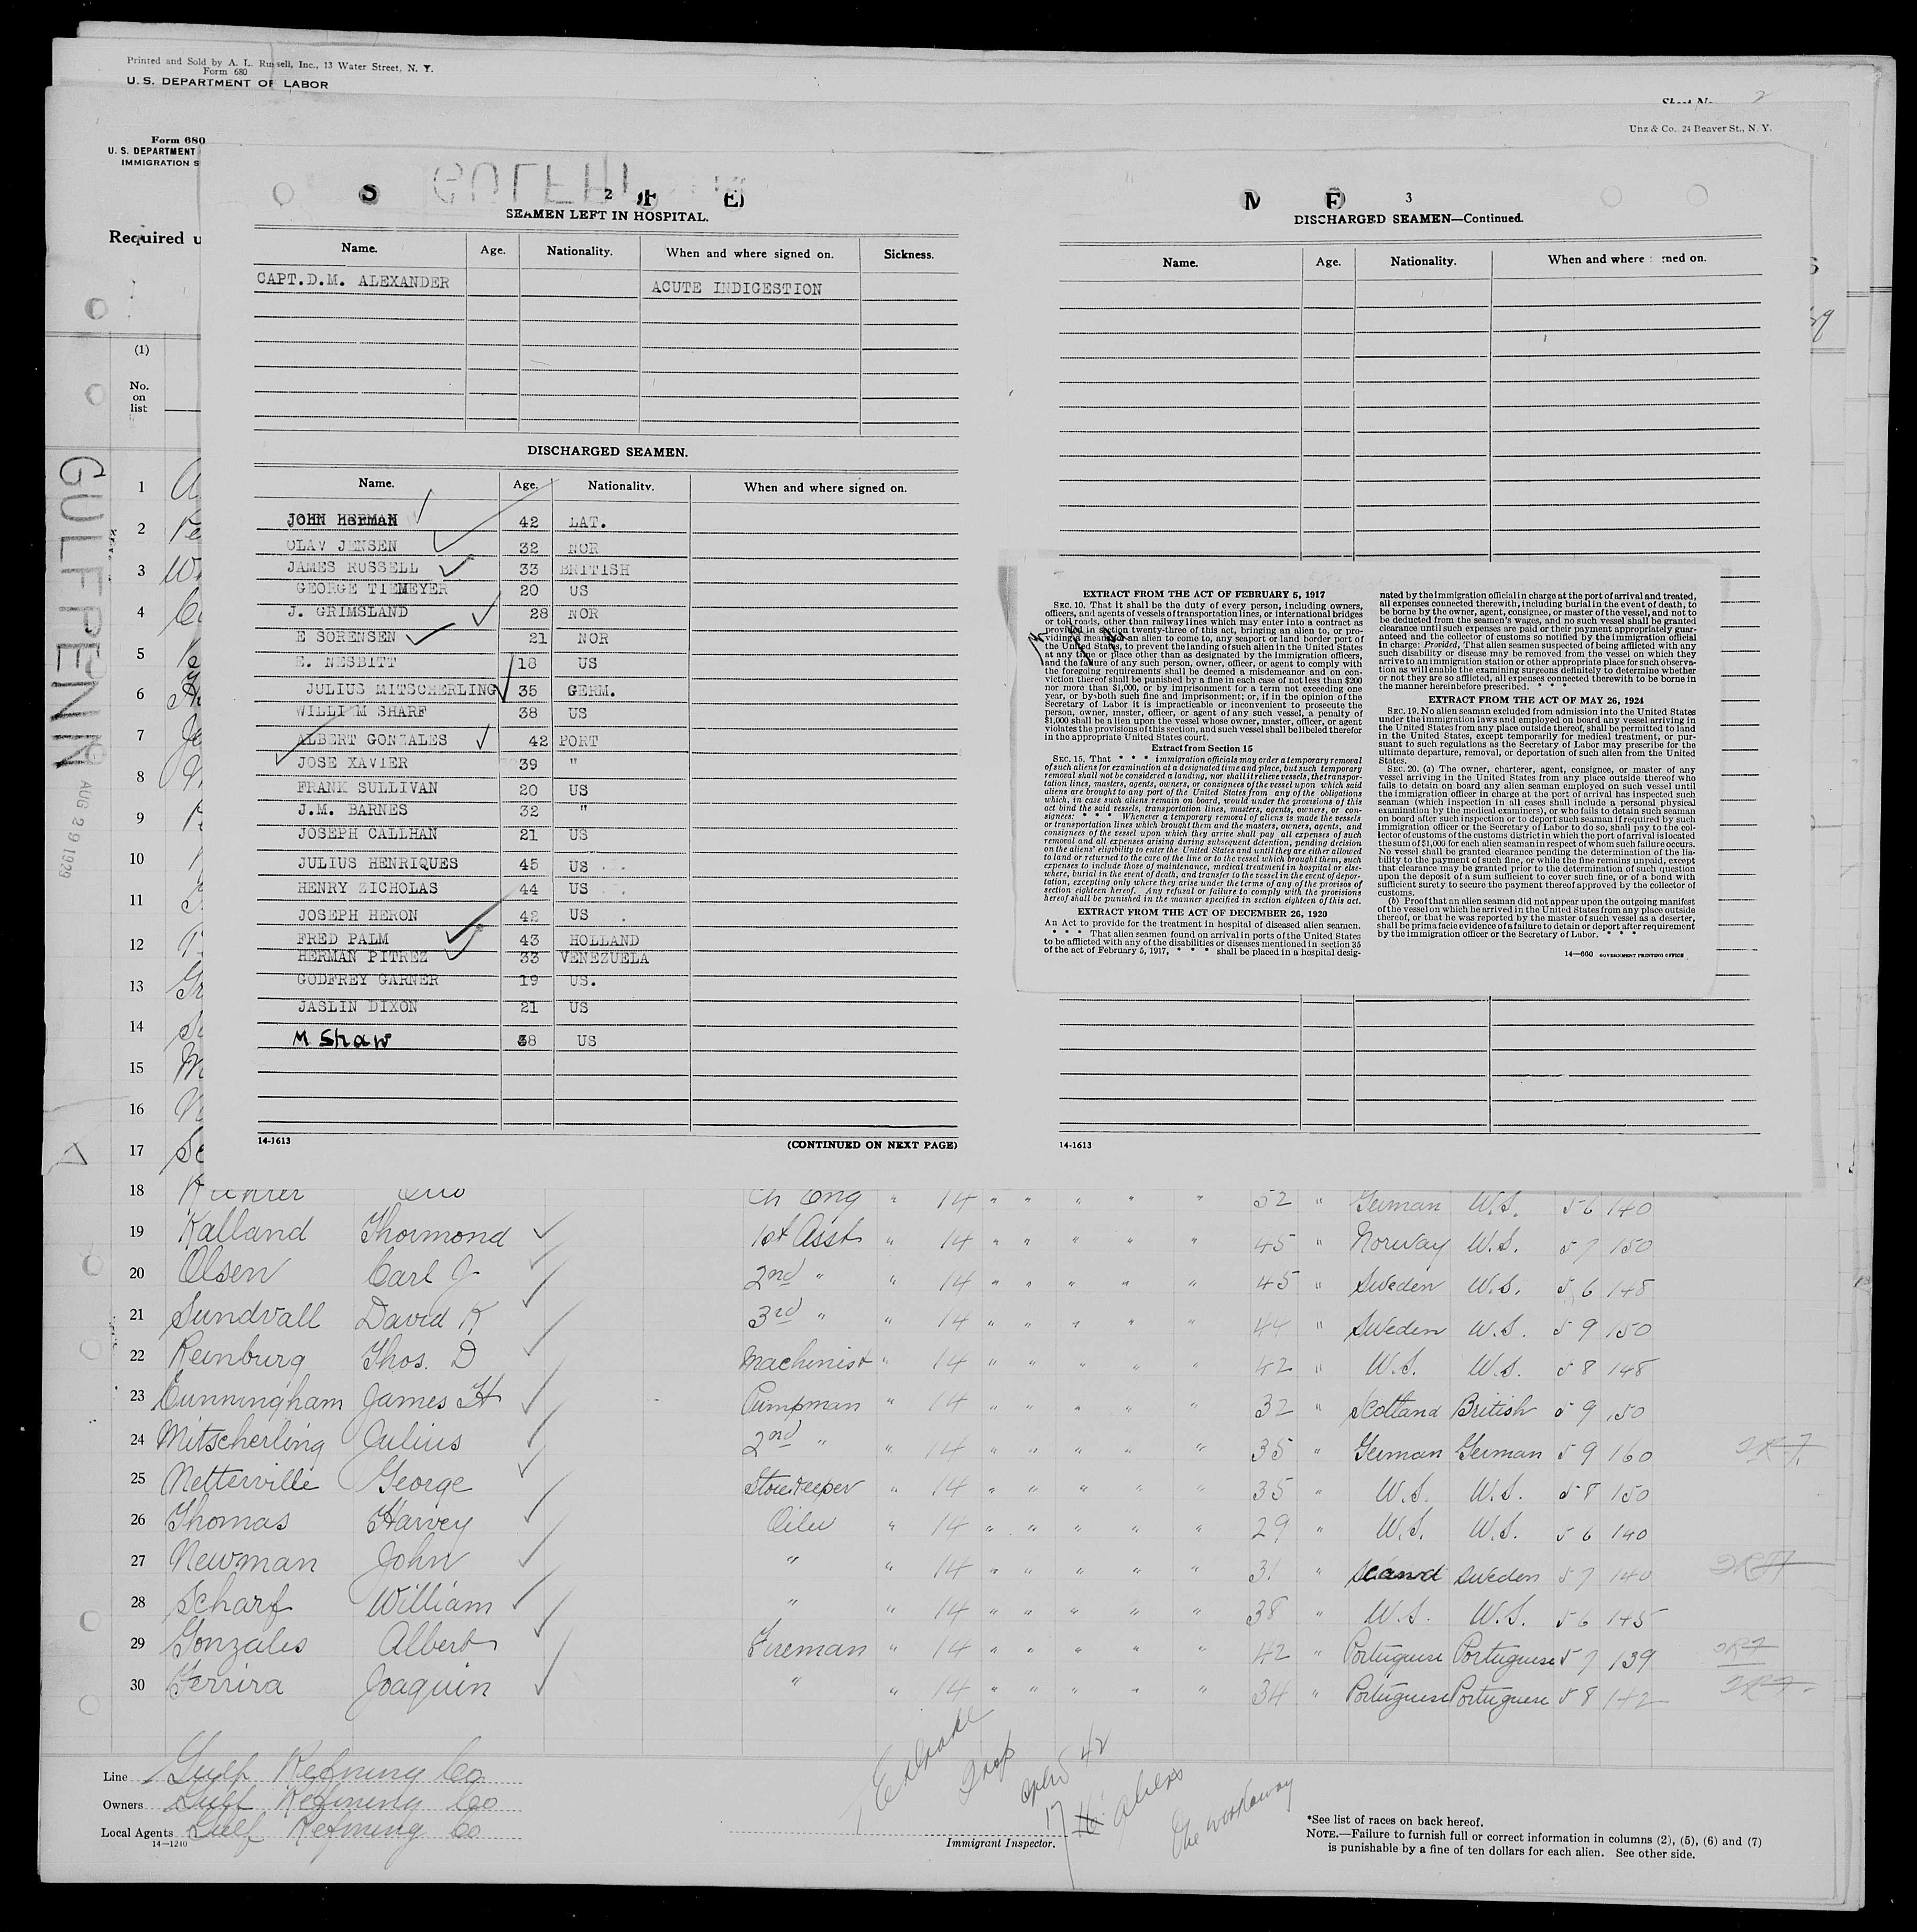 Printed and Sold by A. L. Russell, Inc., 13 Water Street, N. Y.
Form 680
U. S. DEPARTMENT OF LABOR
Sheet No. 2
Unz & Co. 24 Beaver St., N. Y.
Form 680
U. S. DEPARTMENT
IMMIGRATION S
Required u
(1)
No.
on
list
GULFPENN
AUG 29 1929
2
SEAMEN LEFT IN HOSPITAL.
Name. Age. Nationality. When and where signed on. Sickness.
CAPT.D.M. ALEXANDER ACUTE INDIGESTION
DISCHARGED SEAMEN.
Name. Age. Nationality. When and where signed on.
JOHN HERMAN 42 LAT.
OLAV JENSEN 32 NOR
JAMES RUSSELL 33 BRITISH
GEORGE TIEMEYER 20 US
J. GRIMSLAND 28 NOR
E SORENSEN 21 NOR
E. NESBITT 18 US
JULIUS MITSCHERLING 35 GERM.
WILLIAM SHARF 38 US
ALBERT GONZALES 42 PORT
JOSE XAVIER 39 "
FRANK SULLIVAN 20 US
J.M. BARNES 32 "
JOSEPH CALLHAN 21 US
JULIUS HENRIQUES 45 US
HENRY ZICHOLAS 44 US
JOSEPH HERON 42 US
FRED PALM 43 HOLLAND
HERMAN PITREZ 33 VENEZUELA
GODFREY GARNER 19 US.
JASLIN DIXON 21 US
M Shaw 38 US
14-1613 (CONTINUED ON NEXT PAGE)
3
DISCHARGED SEAMEN—Continued.
Name. Age. Nationality. When and where signed on.
EXTRACT FROM THE ACT OF FEBRUARY 5, 1917
SEC. 10. That it shall be the duty of every person, including owners,
officers, and agents of vessels of transportation lines, or international bridges
or toll roads, other than railway lines which may enter into a contract as
provided in section twenty-three of this act, bringing an alien to, or pro-
viding a means for an alien to come to, any seaport or land border port of
the United States, to prevent the landing of such alien in the United States
at any time or place other than as designated by the immigration officers,
and the failure of any such person, owner, officer, or agent to comply with
the foregoing requirements shall be deemed a misdemeanor and on con-
viction thereof shall be punished by a fine in each case of not less than $200
nor more than $1,000, or by imprisonment for a term not exceeding one
year, or by both such fine and imprisonment; or, if in the opinion of the
Secretary of Labor it is impracticable or inconvenient to prosecute the
person, owner, master, officer, or agent of any such vessel, a penalty of
$1,000 shall be a lien upon the vessel whose owner, master, officer, or agent
violates the provisions of this section, and such vessel shall be libeled therefor
in the appropriate United States court.
Extract from Section 15
SEC. 15. That * * * immigration officials may order a temporary removal
of such aliens for examination at a designated time and place, but such temporary
removal shall not be considered a landing, nor shall it relieve vessels, the transpor-
tation lines, masters, agents, owners, or consignees of the vessel upon which said
aliens are brought to any port of the United States from any of the obligations
which, in case such aliens remain on board, would under the provisions of this
act bind the said vessels, transportation lines, masters, agents, owners, or con-
signees: * * * Whenever a temporary removal of aliens is made the vessels
or transportation lines which brought them and the masters, owners, agents, and
consignees of the vessel upon which they arrive shall pay all expenses of such
removal and all expenses arising during subsequent detention, pending decision
on the aliens' eligibility to enter the United States and until they are either allowed
to land or returned to the care of the line or to the vessel which brought them, such
expenses to include those of maintenance, medical treatment in hospital or else-
where, burial in the event of death, and transfer to the vessel in the event of depor-
tation, excepting only where they arise under the terms of any of the provisos of
section eighteen hereof. Any refusal or failure to comply with the provisions
hereof shall be punished in the manner specified in section eighteen of this act.
EXTRACT FROM THE ACT OF DECEMBER 26, 1920
An Act to provide for the treatment in hospital of diseased alien seamen.
* * * That alien seamen found on arrival in ports of the United States
to be afflicted with any of the disabilities or diseases mentioned in section 35
of the act of February 5, 1917, * * * shall be placed in a hospital desig-
nated by the immigration official in charge at the port of arrival and treated,
all expenses connected therewith, including burial in the event of death, to
be borne by the owner, agent, consignee, or master of the vessel, and not to
be deducted from the seamen's wages, and no such vessel shall be granted
clearance until such expenses are paid or their payment appropriately guar-
anteed and the collector of customs so notified by the immigration official
in charge: Provided, That alien seamen suspected of being afflicted with any
such disability or disease may be removed from the vessel on which they
arrive to an immigration station or other appropriate place for such observa-
tion as will enable the examining surgeons definitely to determine whether
or not they are so afflicted, all expenses connected therewith to be borne in
the manner hereinbefore prescribed. * * *
EXTRACT FROM THE ACT OF MAY 26, 1924
SEC. 19. No alien seaman excluded from admission into the United States
under the immigration laws and employed on board any vessel arriving in
the United States from any place outside thereof, shall be permitted to land
in the United States, except temporarily for medical treatment, or pur-
suant to such regulations as the Secretary of Labor may prescribe for the
ultimate departure, removal, or deportation of such alien from the United
States.
SEC. 20. (a) The owner, charterer, agent, consignee, or master of any
vessel arriving in the United States from any place outside thereof who
fails to detain on board any alien seaman employed on such vessel until
the immigration officer in charge at the port of arrival has inspected such
seaman (which inspection in all cases shall include a personal physical
examination by the medical examiners), or who fails to detain such seaman
on board after such inspection or to deport such seaman if required by such
immigration officer or the Secretary of Labor to do so, shall pay to the col-
lector of customs of the customs district in which the port of arrival is located
the sum of $1,000 for each alien seaman in respect of whom such failure occurs.
No vessel shall be granted clearance pending the determination of the lia-
bility to the payment of such fine, or while the fine remains unpaid, except
that clearance may be granted prior to the determination of such question
upon the deposit of a sum sufficient to cover such fine, or of a bond with
sufficient surety to secure the payment thereof approved by the collector of
customs.
(b) Proof that an alien seaman did not appear upon the outgoing manifest
of the vessel on which he arrived in the United States from any place outside
thereof, or that he was reported by the master of such vessel as a deserter,
shall be prima facie evidence of a failure to detain or deport after requirement
by the immigration officer or the Secretary of Labor. * * *
14—660 GOVERNMENT PRINTING OFFICE
14-1613
1
2
3
4
5
6
7
8
9
10
11
12
13
14
15
16
17
18 Otto Ch Eng " 14 " " " " " 52 " German U.S. 5 6 140
19 Kalland Thormond 1st Asst " 14 " " " " " 45 " Norway U.S. 5 7 150
20 Olsen Carl J 2nd " " 14 " " " " " 45 " Sweden U.S. 5 6 148
21 Sundvall David K 3rd " " 14 " " " " " 44 " Sweden U.S. 5 9 150
22 Reinburg Thos. D Machinist " 14 " " " " " 42 " U.S. U.S. 5 8 148
23 Cunningham James H Pumpman " 14 " " " " " 32 " Scotland British 5 9 150
24 Mitscherling Julius 2nd " " 14 " " " " " 35 " German German 5 9 160
25 Netterville George Storekeeper " 14 " " " " " 35 " U.S. U.S. 5 8 150
26 Thomas Harvey Oiler " 14 " " " " " 29 " U.S. U.S. 5 6 140
27 Newman John " " 14 " " " " " 31 " Scand Sweden 5 7 140
28 Scharf William " " 14 " " " " " 38 " U.S. U.S. 5 6 145
29 Gonzales Albert Fireman " 14 " " " " " 42 " Portuguese Portuguese 5 7 139
30 Ferrira Joaquin " " 14 " " " " " 34 " Portuguese Portuguese 5 8 142
Line Gulf Refining Co
Owners Gulf Refining Co
Local Agents Gulf Refining Co
14—1240
42
17 16 aliens
workaway
Immigrant Inspector.
*See list of races on back hereof.
NOTE.—Failure to furnish full or correct information in columns (2), (5), (6) and (7)
is punishable by a fine of ten dollars for each alien. See other side.